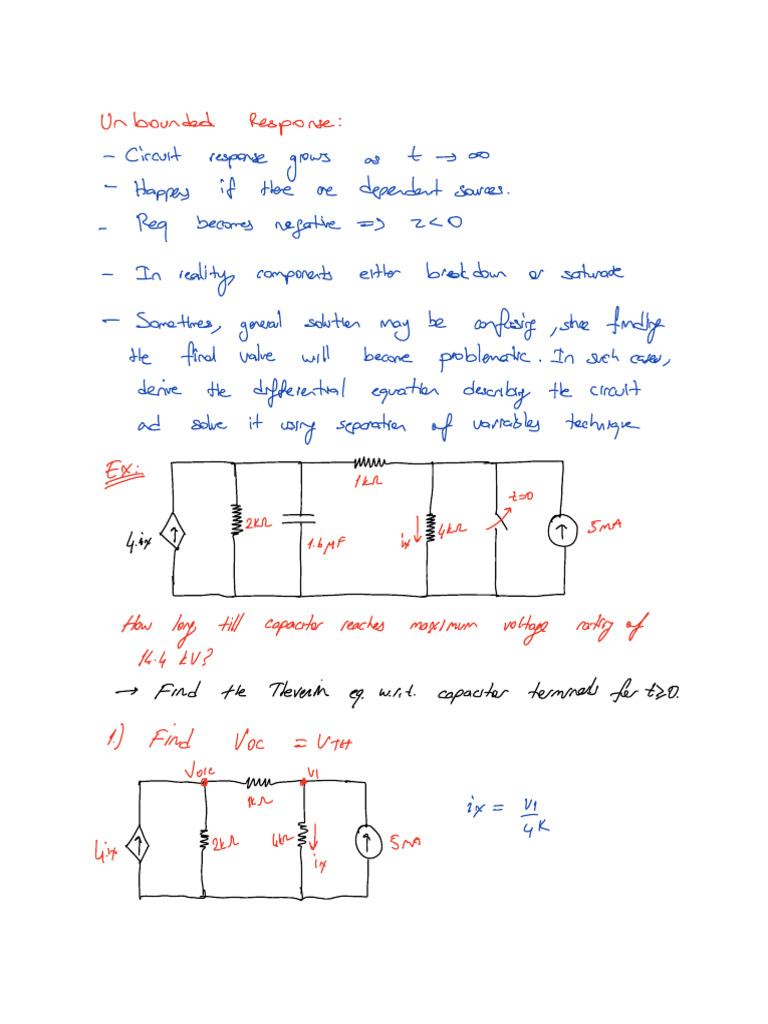 Unbounded Response:
- Circuit response grows as t → ∞
- Happens if there are dependent sources.
- Req becomes negative => τ < 0
- In reality, components either breakdown or saturate
- Sometimes, general solution may be confusing, since finding
the final value will become problematic. In such cases,
derive the differential equation describing the circuit
and solve it using separation of variables technique
Ex:
1kΩ
t=0
4.ix
2kΩ
1.6 μF
ix
4kΩ
5mA
How long till capacitor reaches maximum voltage rating of
14.4 kV?
→ Find the Thevenin eq. w.r.t. capacitor terminals for t≥0.
1.) Find VOC = VTH
V1
1kΩ
ix = V1
4K
4.ix
2kΩ
4kΩ
ix
5mA